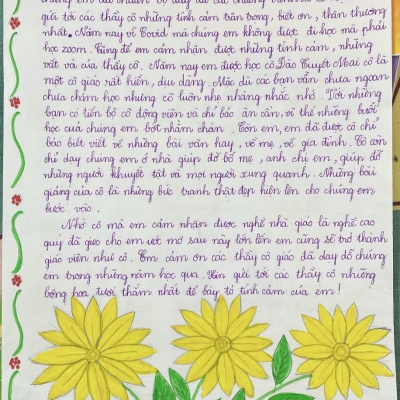 gửi tới các thầy cô những tình cảm trân trọng, biết ơn, thân thương
nhất. Năm nay vì Covid mà chúng em không được đi học mà phải
học zoom. Cũng để em cảm nhận được những tình cảm, những
vất vả của thầy cô. Năm nay em được học cô Đào Tuyết Mai cô là
một cô giáo rất hiền, dịu dàng. Mặc dù các bạn vẫn chưa ngoan
chưa chăm học nhưng cô luôn nhẹ nhàng nhắc nhở. Với những
bạn có tiến bộ cô động viên và chỉ bảo ân cần, vì thế những buổi
học của chúng em bớt nhàm chán. Còn em, em đã được cô chỉ
bảo biết viết về những bài văn hay, về mẹ, về gia đình. Cô còn
chỉ dạy chúng em ở nhà giúp đỡ bố mẹ, anh chị em, giúp đỡ
những người khuyết tật và mọi người xung quanh. Những bài
giảng của cô là những bức tranh thật đẹp hiện lên cho chúng em
bước vào.
Nhờ cô mà em cảm nhận được nghề nhà giáo là nghề cao
quý đã gieo cho em ước mơ sau này lớn lên em cũng sẽ trở thành
giáo viên như cô. Em cảm ơn các thầy cô giáo đã dạy dỗ chúng
em trong những năm học qua. Xin gửi tới các thầy cô những
bông hoa tươi thắm nhất để bày tỏ tình cảm của em!